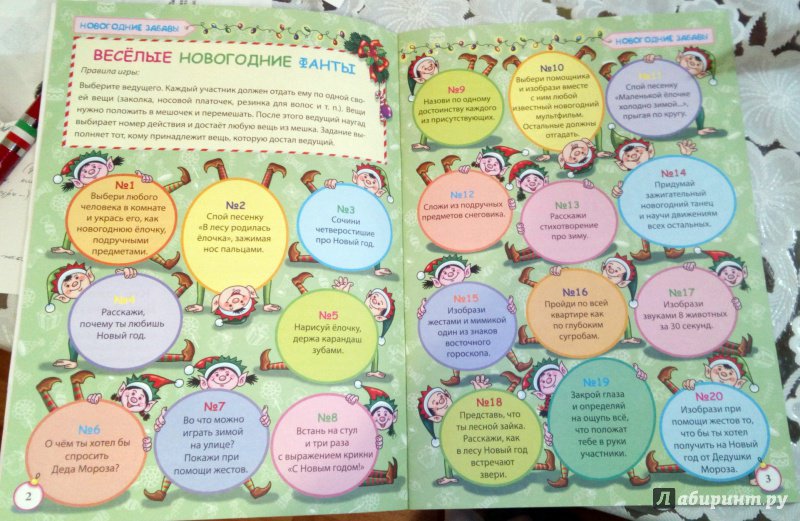 НОВОГОДНИЕ ЗАБАВЫ
ВЕСЁЛЫЕ НОВОГОДНИЕ ФАНТЫ
Правила игры:
Выберите ведущего. Каждый участник должен отдать ему по одной сво-
ей вещи (заколка, носовой платочек, резинка для волос и т. п.). Вещи
нужно положить в мешочек и перемешать. После этого ведущий наугад
выбирает номер действия и достаёт любую вещь из мешка. Задание вы-
полняет тот, кому принадлежит вещь, которую достал ведущий.
№1
Выбери любого
человека в комнате
и укрась его, как
новогоднюю ёлочку,
подручными
предметами.
№2
Спой песенку
"В лесу родилась
ёлочка", зажимая
нос пальцами.
№3
Сочини
четверостишие
про Новый год.
№4
Расскажи,
почему ты любишь
Новый год.
№5
Нарисуй ёлочку,
держа карандаш
зубами.
№6
О чём ты хотел бы
спросить
Деда Мороза?
№7
Во что можно
играть зимой
на улице?
Покажи при
помощи жестов.
№8
Встань на стул
и три раза
с выражением крикни
«С Новым годом!»
2
НОВОГОДНИЕ ЗАБАВЫ
№9
Назови по одному
достоинству каждого
из присутствующих.
№10
Выбери помощника
и изобрази вместе
с ним любой
известный новогодний
мультфильм.
Остальные должны
отгадать.
№11
Спой песенку
«Маленькой ёлочке
холодно зимой...»,
прыгая по кругу.
№12
Сложи из подручных
предметов снеговика.
№13
Расскажи
стихотворение
про зиму.
№14
Придумай
зажигательный
новогодний танец
и научи движениям
всех остальных.
№15
Изобрази
жестами и мимикой
один из знаков
восточного
гороскопа.
№16
Пройди по всей
квартире как
по глубоким
сугробам.
№17
Изобрази
звуками 8 животных
за 30 секунд.
№18
Представь, что
ты лесной зайка.
Расскажи, как
в лесу Новый год
встречают
звери.
№19
Закрой глаза
и определяй
на ощупь всё,
что положат
тебе в руки
участники.
№20
Изобрази при
помощи жестов то,
что бы ты хотел
получить на Новый
год от Дедушки
Мороза.
3
Лабиринт.ру